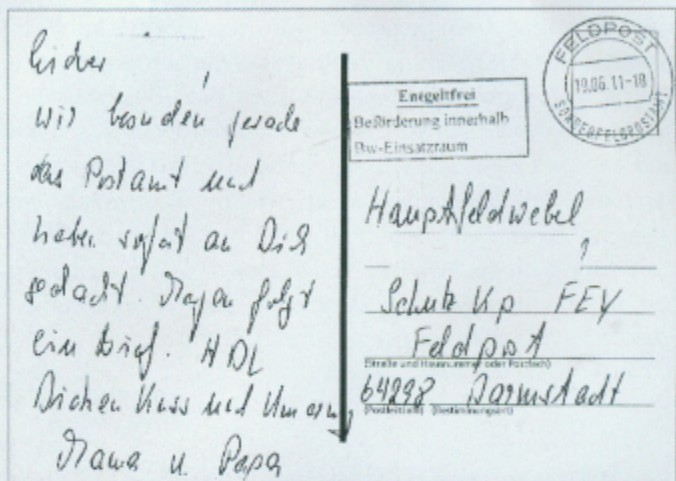 Lieber ,
wir besuchen gerade
das Postamt und
haben sofort an Dich
gedacht. Morgen folgt
ein Brief. HDL
Dicken Kuss und Umarmung
Mama u. Papa
Entgeltfrei
Beförderung innerhalb
Bw-Einsatzraum
FELDPOST
19.06.11-18
SONDERFELDPOSTAMT
Hauptfeldwebel
,
Schutz Kp FEY
Feldpost
(Straße und Hausnummer oder Postfach)
64298 Darmstadt
(Postleitzahl) (Bestimmungsort)